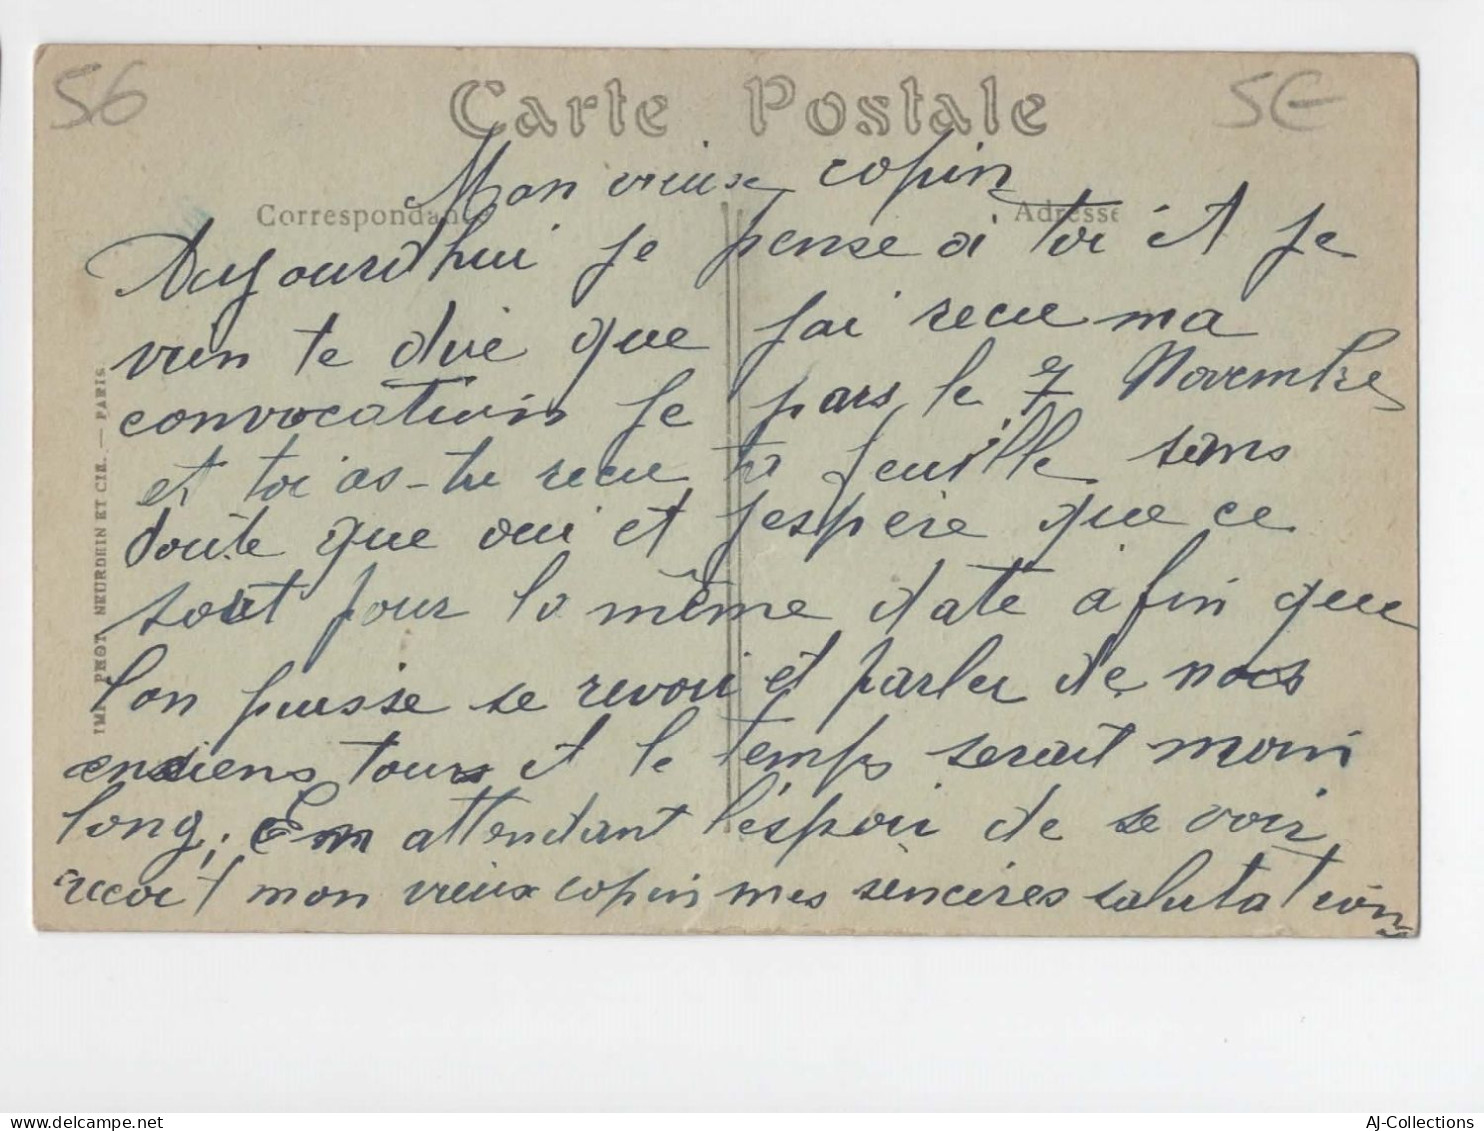 56
5€
Carte Postale
Correspondance
Adresse
Mon vieux copin
Aujourdhui je pense a toi et je
vien te dire que jai recue ma
convocation je pars le 7 Novembre
et toi as-tu recue ta feuille sans
doute que oui et j'espère que ce
soit pour la même date afin que
l'on puisse se revoir et parler de nos
ensiens tours et le temps serait moin
long, En attendant l'éspoir de se voir
recoit mon vieux copin mes sincères salutations
IMP. PHOT. NEURDEIN ET CIE. — PARIS.
https://www.delcampe.net
AJ-Collections